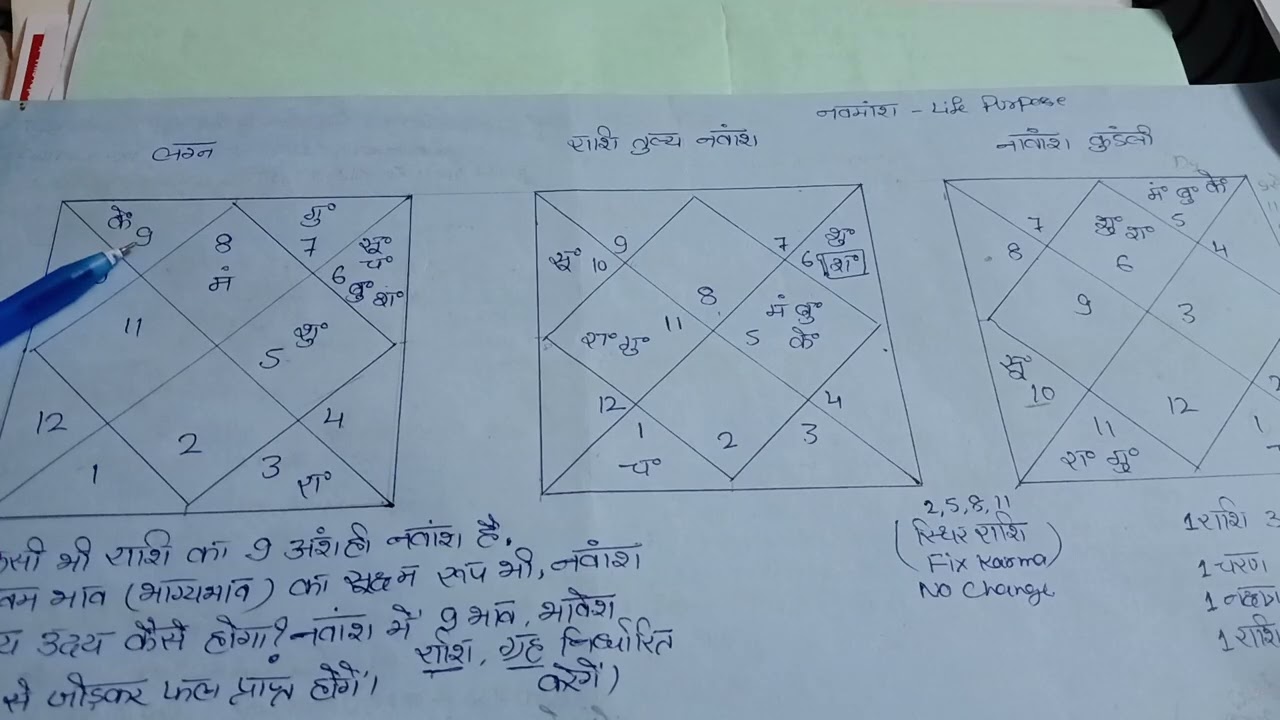 नवमांश - Life Purpose
लग्न
राशि तुल्य नवांश
नवांश कुंडली
के॰
9
8
मं
गु॰
7
सू॰
चं॰
6
बु॰ श॰
11
शु॰
5
12
2
4
1
3
रा॰
9
सू॰ 10
7
शु॰
6 श॰
8
मं बु॰
के॰
5
रा॰ गु॰
11
12
4
1
चं॰
2
3
मं॰ बु॰ के॰
5
7
8
शु॰ श॰
6
4
9
3
सू॰
10
12
11
रा॰ गु॰
1
2,5,8,11
(स्थिर राशि
Fix Karma)
No Change
भी राशि का 9 अंश ही नवांश है.
भाव (भाग्यभाव) का सूक्ष्म रूप भी, नवांश
उदय कैसे होगा? नवांश में 9 भाव, भावेश
राशि, ग्रह निर्धारित
करेगें)
से जोड़कर फल प्राप्त होगें।
1 राशि
1 चरण
1
1 राशि